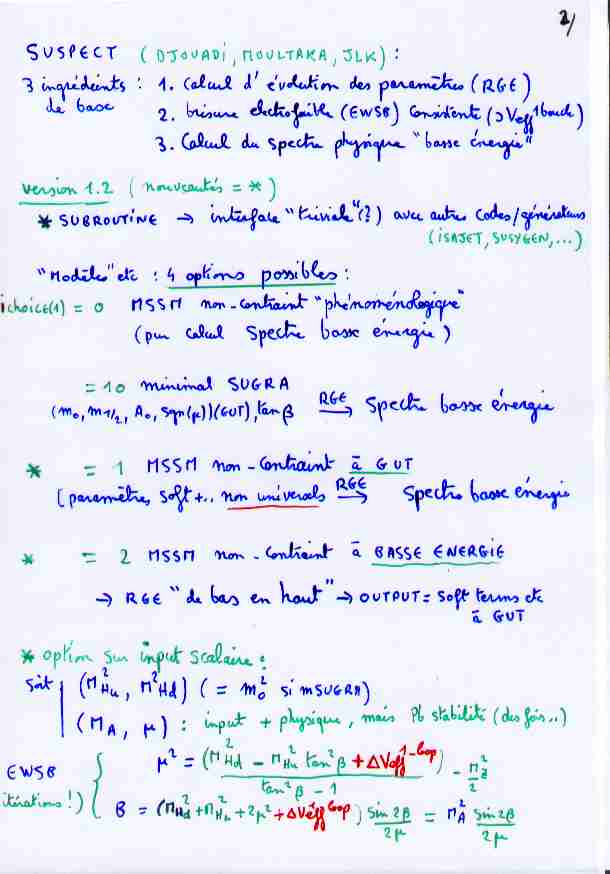 2/
SUSPECT (DJOUADI, MOULTAKA, JLK) :
3 ingrédients : 1. Calcul d'évolution des paramètres (RGE)
de base 2. brisure electrofaible (EWSB) Consistente (⊃ Veff^1 boucle)
3. Calcul du spectre physique "basse énergie"
version 1.2 (nouveautés = *)
* SUBROUTINE → interface "triviale" (?) avec autres Codes/générateurs
(ISAJET, SUSYGEN, ...)
"Modèles" etc : 4 options possibles :
ichoice(1) = 0 MSSM non-contraint "phénoménologique"
(pur calcul Spectre basse énergie)
= 10 minimal SUGRA
(m0, m1/2, A0, sgn(μ))(GUT), tan β RGE → Spectre basse énergie
* = 1 MSSM non-Contraint à GUT
[paramètres soft +.. non universels RGE → Spectre basse énergie
* = 2 MSSM non-Contraint à BASSE ENERGIE
→ RGE "de bas en haut" → OUTPUT = soft terms etc
à GUT
* option sur input scalaire :
soit (M²Hu, M²Hd) (= m0² si mSUGRA)
(MA, μ) : input + physique, mais Pb stabilité (des fois..)
EWSB μ² = (M²Hd - M²Hu tan²β + ΔVeff^1-loop) / (tan²β - 1) - M²Z/2
itérations !) B = (M²Hd + M²Hu + 2μ² + ΔVeff^loop) sin 2β/2μ = M²A sin 2β/2μ